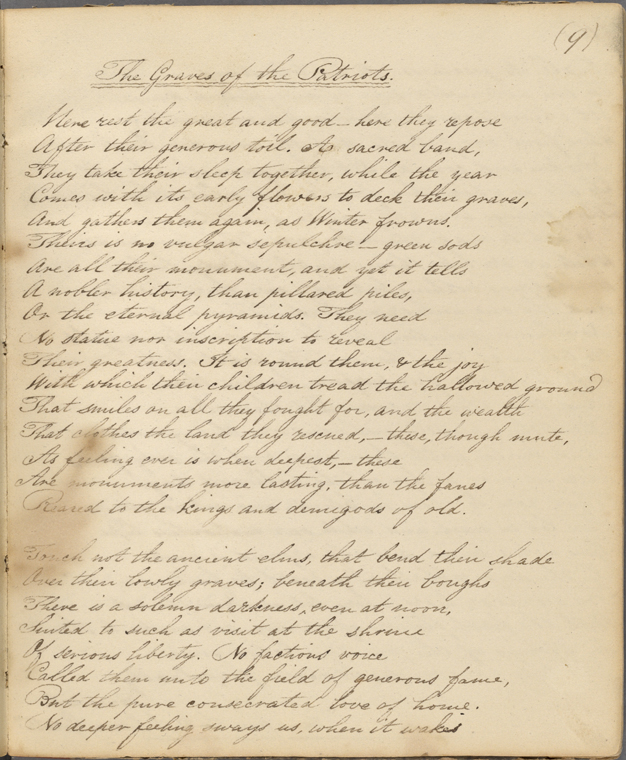 (9)
The Graves of the Patriots.
Here rest the great and good – here they repose
After their generous toil. A sacred band,
They take their sleep together, while the year
Comes with its early flowers to deck their graves,
And gathers them again, as Winter frowns.
Theirs is no vulgar sepulchre – green sods
Are all their monument, and yet it tells
A nobler history, than pillared piles,
Or the eternal pyramids. They need
No statue nor inscription to reveal
Their greatness. It is round them, & the joy
With which their children tread the hallowed ground
That smiles on all they fought for, and the wealth
That clothes the land they rescued, – these, though mute,
As feeling ever is when deepest, – these
Are monuments more lasting, than the fanes
Reared to the kings and demigods of old.
Touch not the ancient elms, that bend their shade
Over their lowly graves; beneath their boughs
There is a solemn darkness, even at noon,
Suited to such as visit at the shrine
Of serious liberty. No factious voice
Called them unto the field of generous fame,
But the pure consecrated love of home.
No deeper feeling sways us, when it wakes